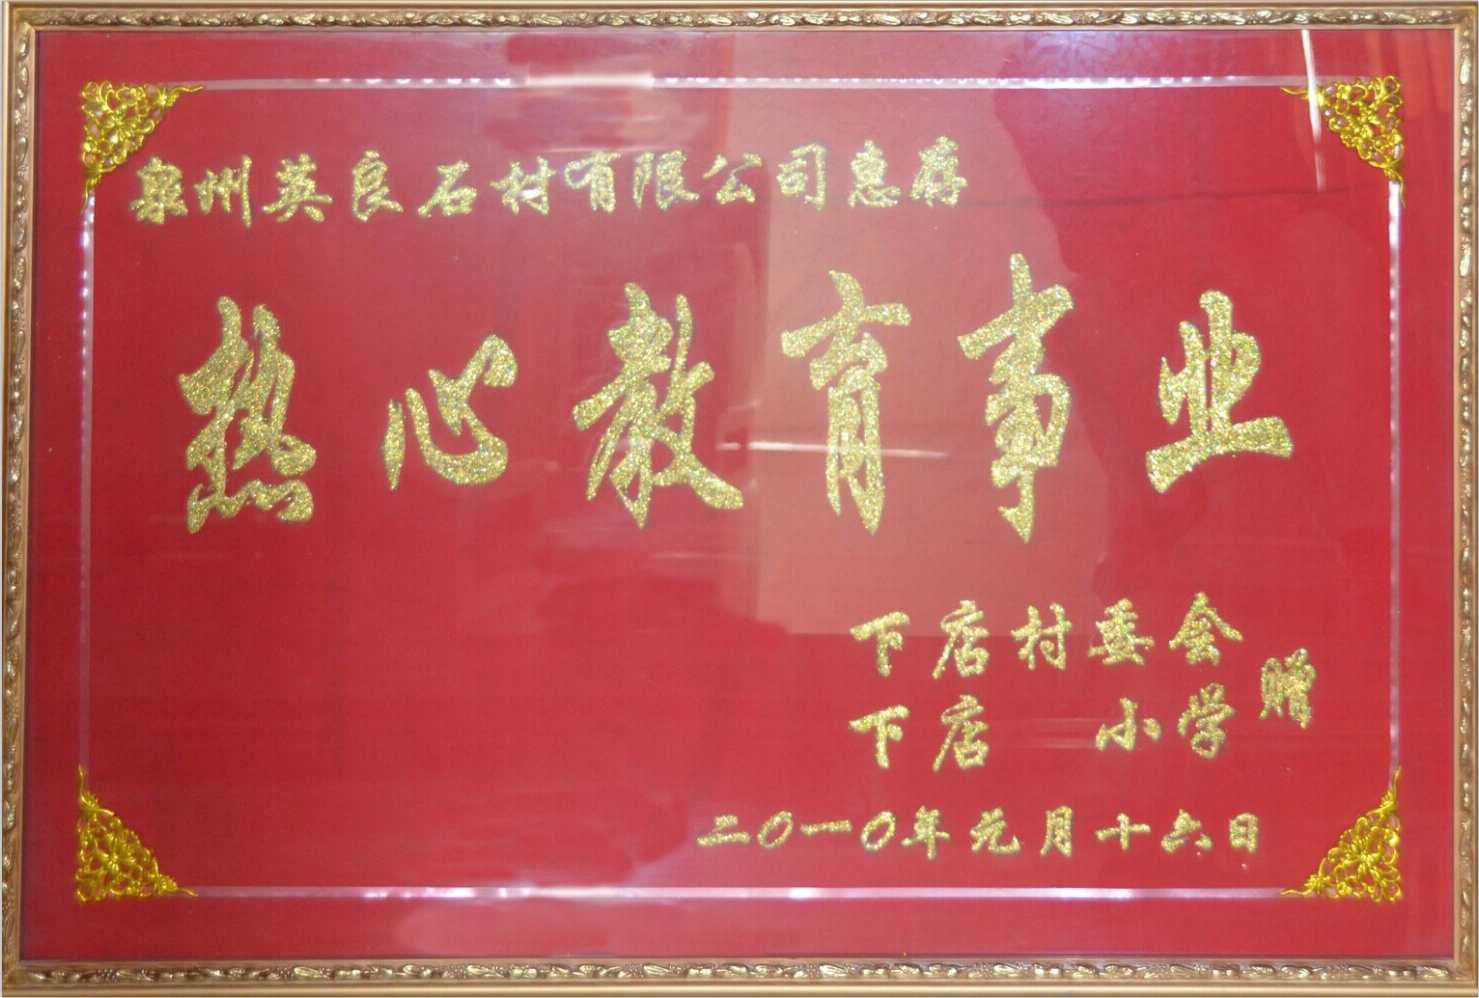 泉州英良石材有限公司惠存
热心教育事业
下店村委会
下店 小学
赠
二〇一〇年元月十六日